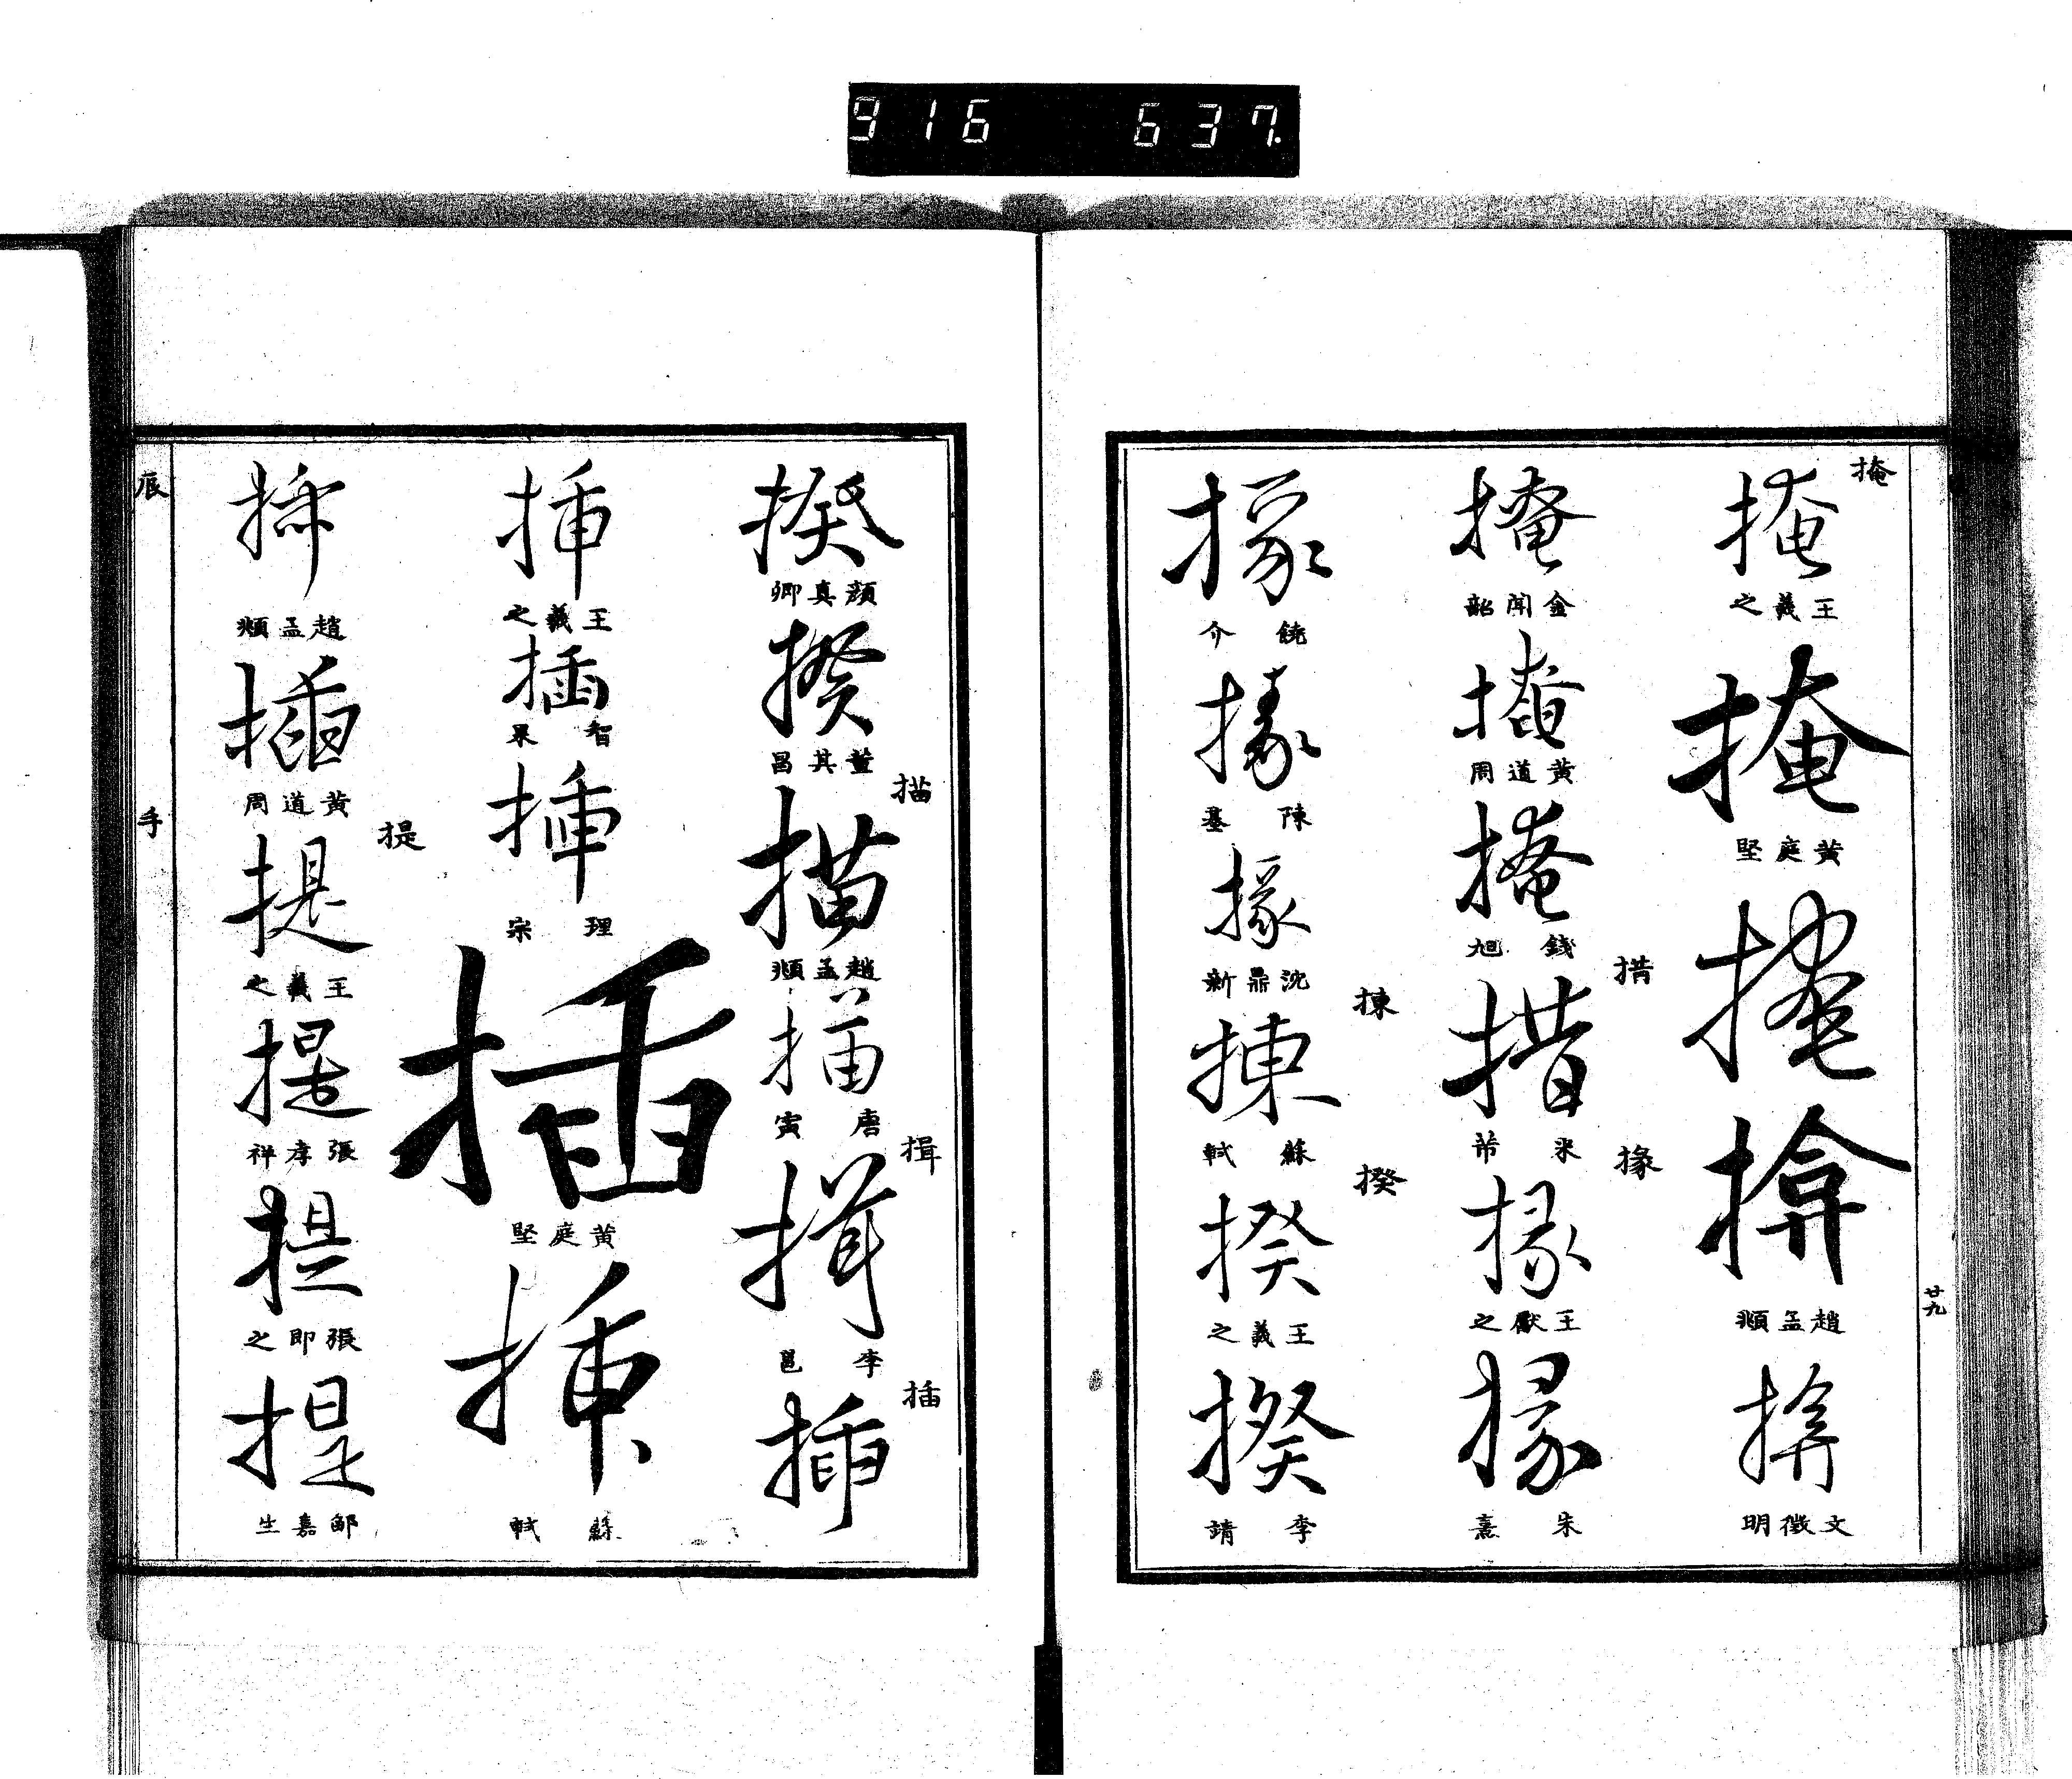 916 637.
掩
掩
王羲之
掩
黃庭堅
掩
揜
趙孟頫
揜
文徵明
廿九
掩
金聞韶
掩
黃道周
掩
錢旭
措
措
米芾
掾
掾
王獻之
掾
朱熹
掾
饒介
掾
陳基
掾
沈鼎新
揀
揀
蘇軾
揆
揆
王羲之
揆
李靖
揆
顏真卿
揆
董其昌
描
描
趙孟頫
描
唐寅
揖
揖
李邕
插
插
插
王羲之
插
智果
插
理宗
插
黃庭堅
插
蘇軾
插
趙孟頫
插
黃道周
提
提
王羲之
提
張孝祥
提
張即之
提
鄒嘉生
辰
手